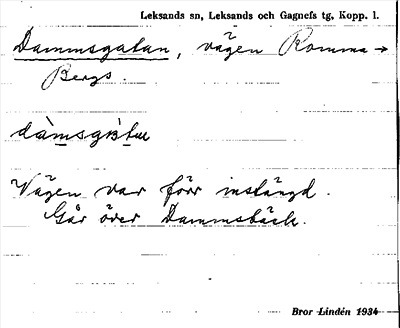 Leksands sn, Leksands och Gagnefs tg, Kopp. l.
Dammsgatan, vägen Romma →
Bergs.
Vägen var förr instängd.
Går över Dammsbäck.
Bror Lindén 1934